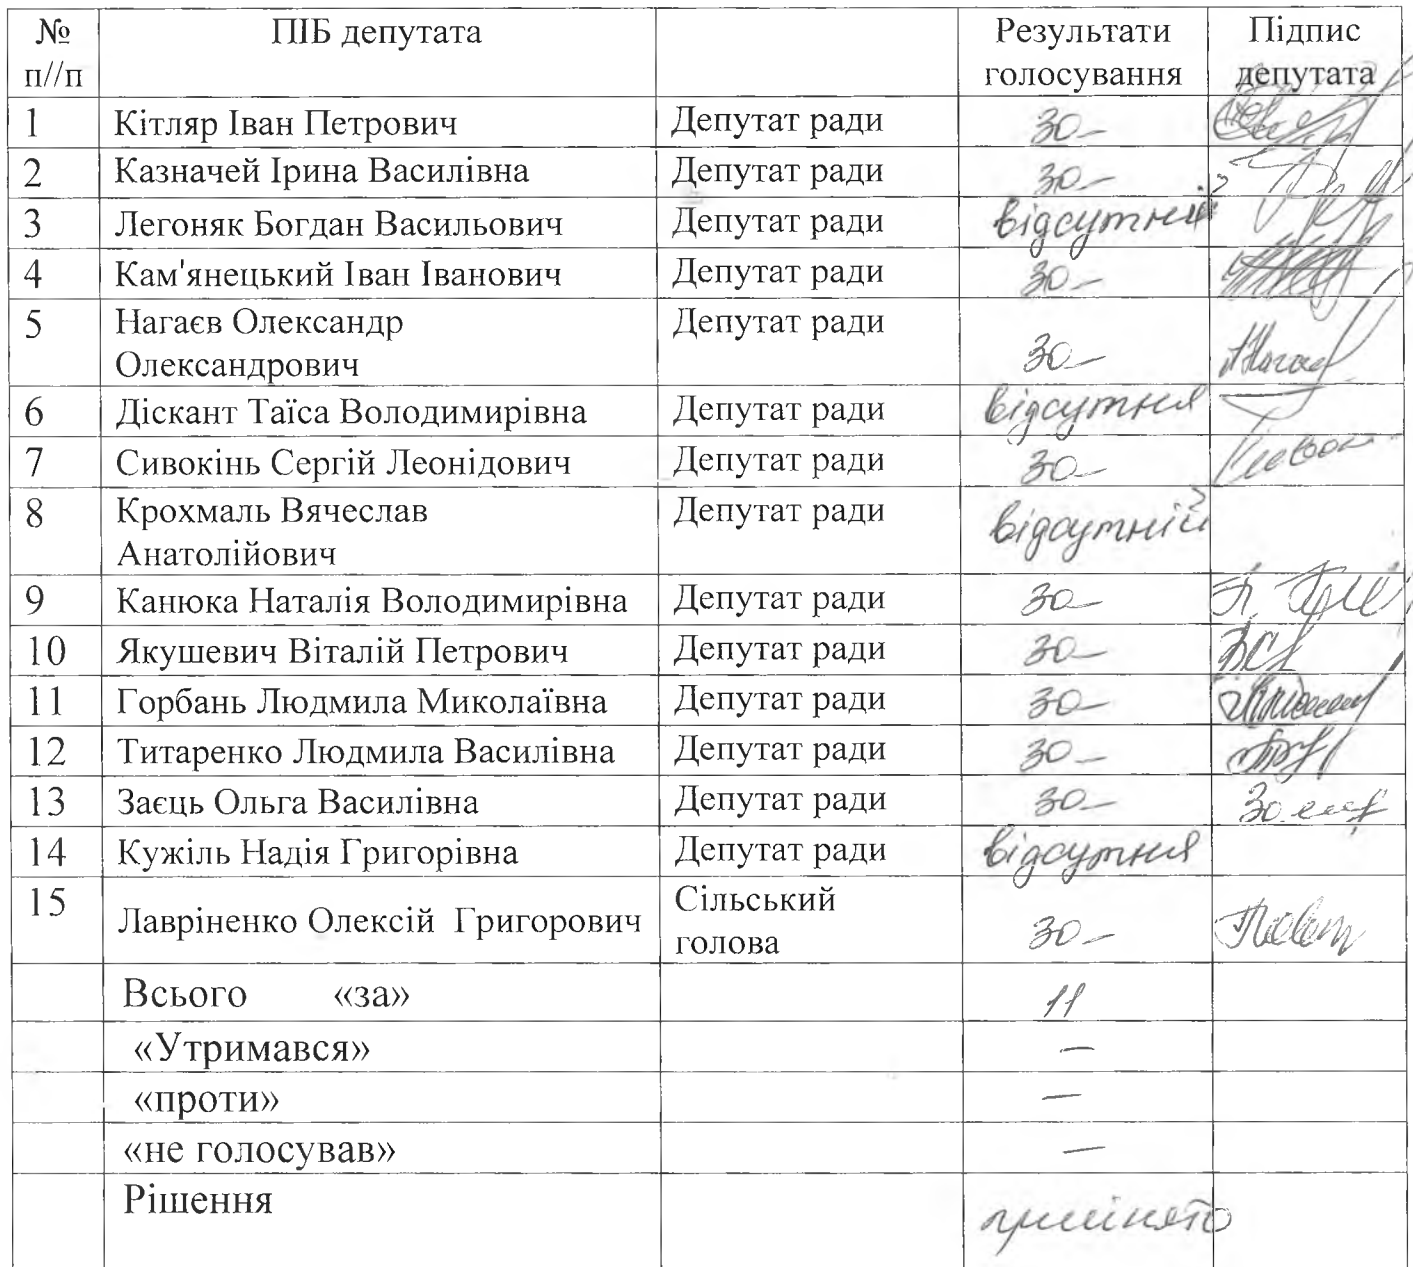 № ПІБ депутата Результати Підпис
п//п голосування депутата
1 Кітляр Іван Петрович Депутат ради за
2 Казначей Ірина Василівна Депутат ради за
3 Легоняк Богдан Васильович Депутат ради відсутній
4 Кам'янецький Іван Іванович Депутат ради за
5 Нагаєв Олександр Депутат ради
Олександрович за
6 Діскант Таїса Володимирівна Депутат ради відсутня
7 Сивокінь Сергій Леонідович Депутат ради за
8 Крохмаль Вячеслав Депутат ради відсутній
Анатолійович
9 Канюка Наталія Володимирівна Депутат ради за
10 Якушевич Віталій Петрович Депутат ради за
11 Горбань Людмила Миколаївна Депутат ради за
12 Титаренко Людмила Василівна Депутат ради за
13 Заєць Ольга Василівна Депутат ради за
14 Кужіль Надія Григорівна Депутат ради відсутня
15 Лавріненко Олексій Григорович Сільський за
голова
Всього «за» 11
«Утримався» —
«проти» —
«не голосував» —
Рішення прийнято